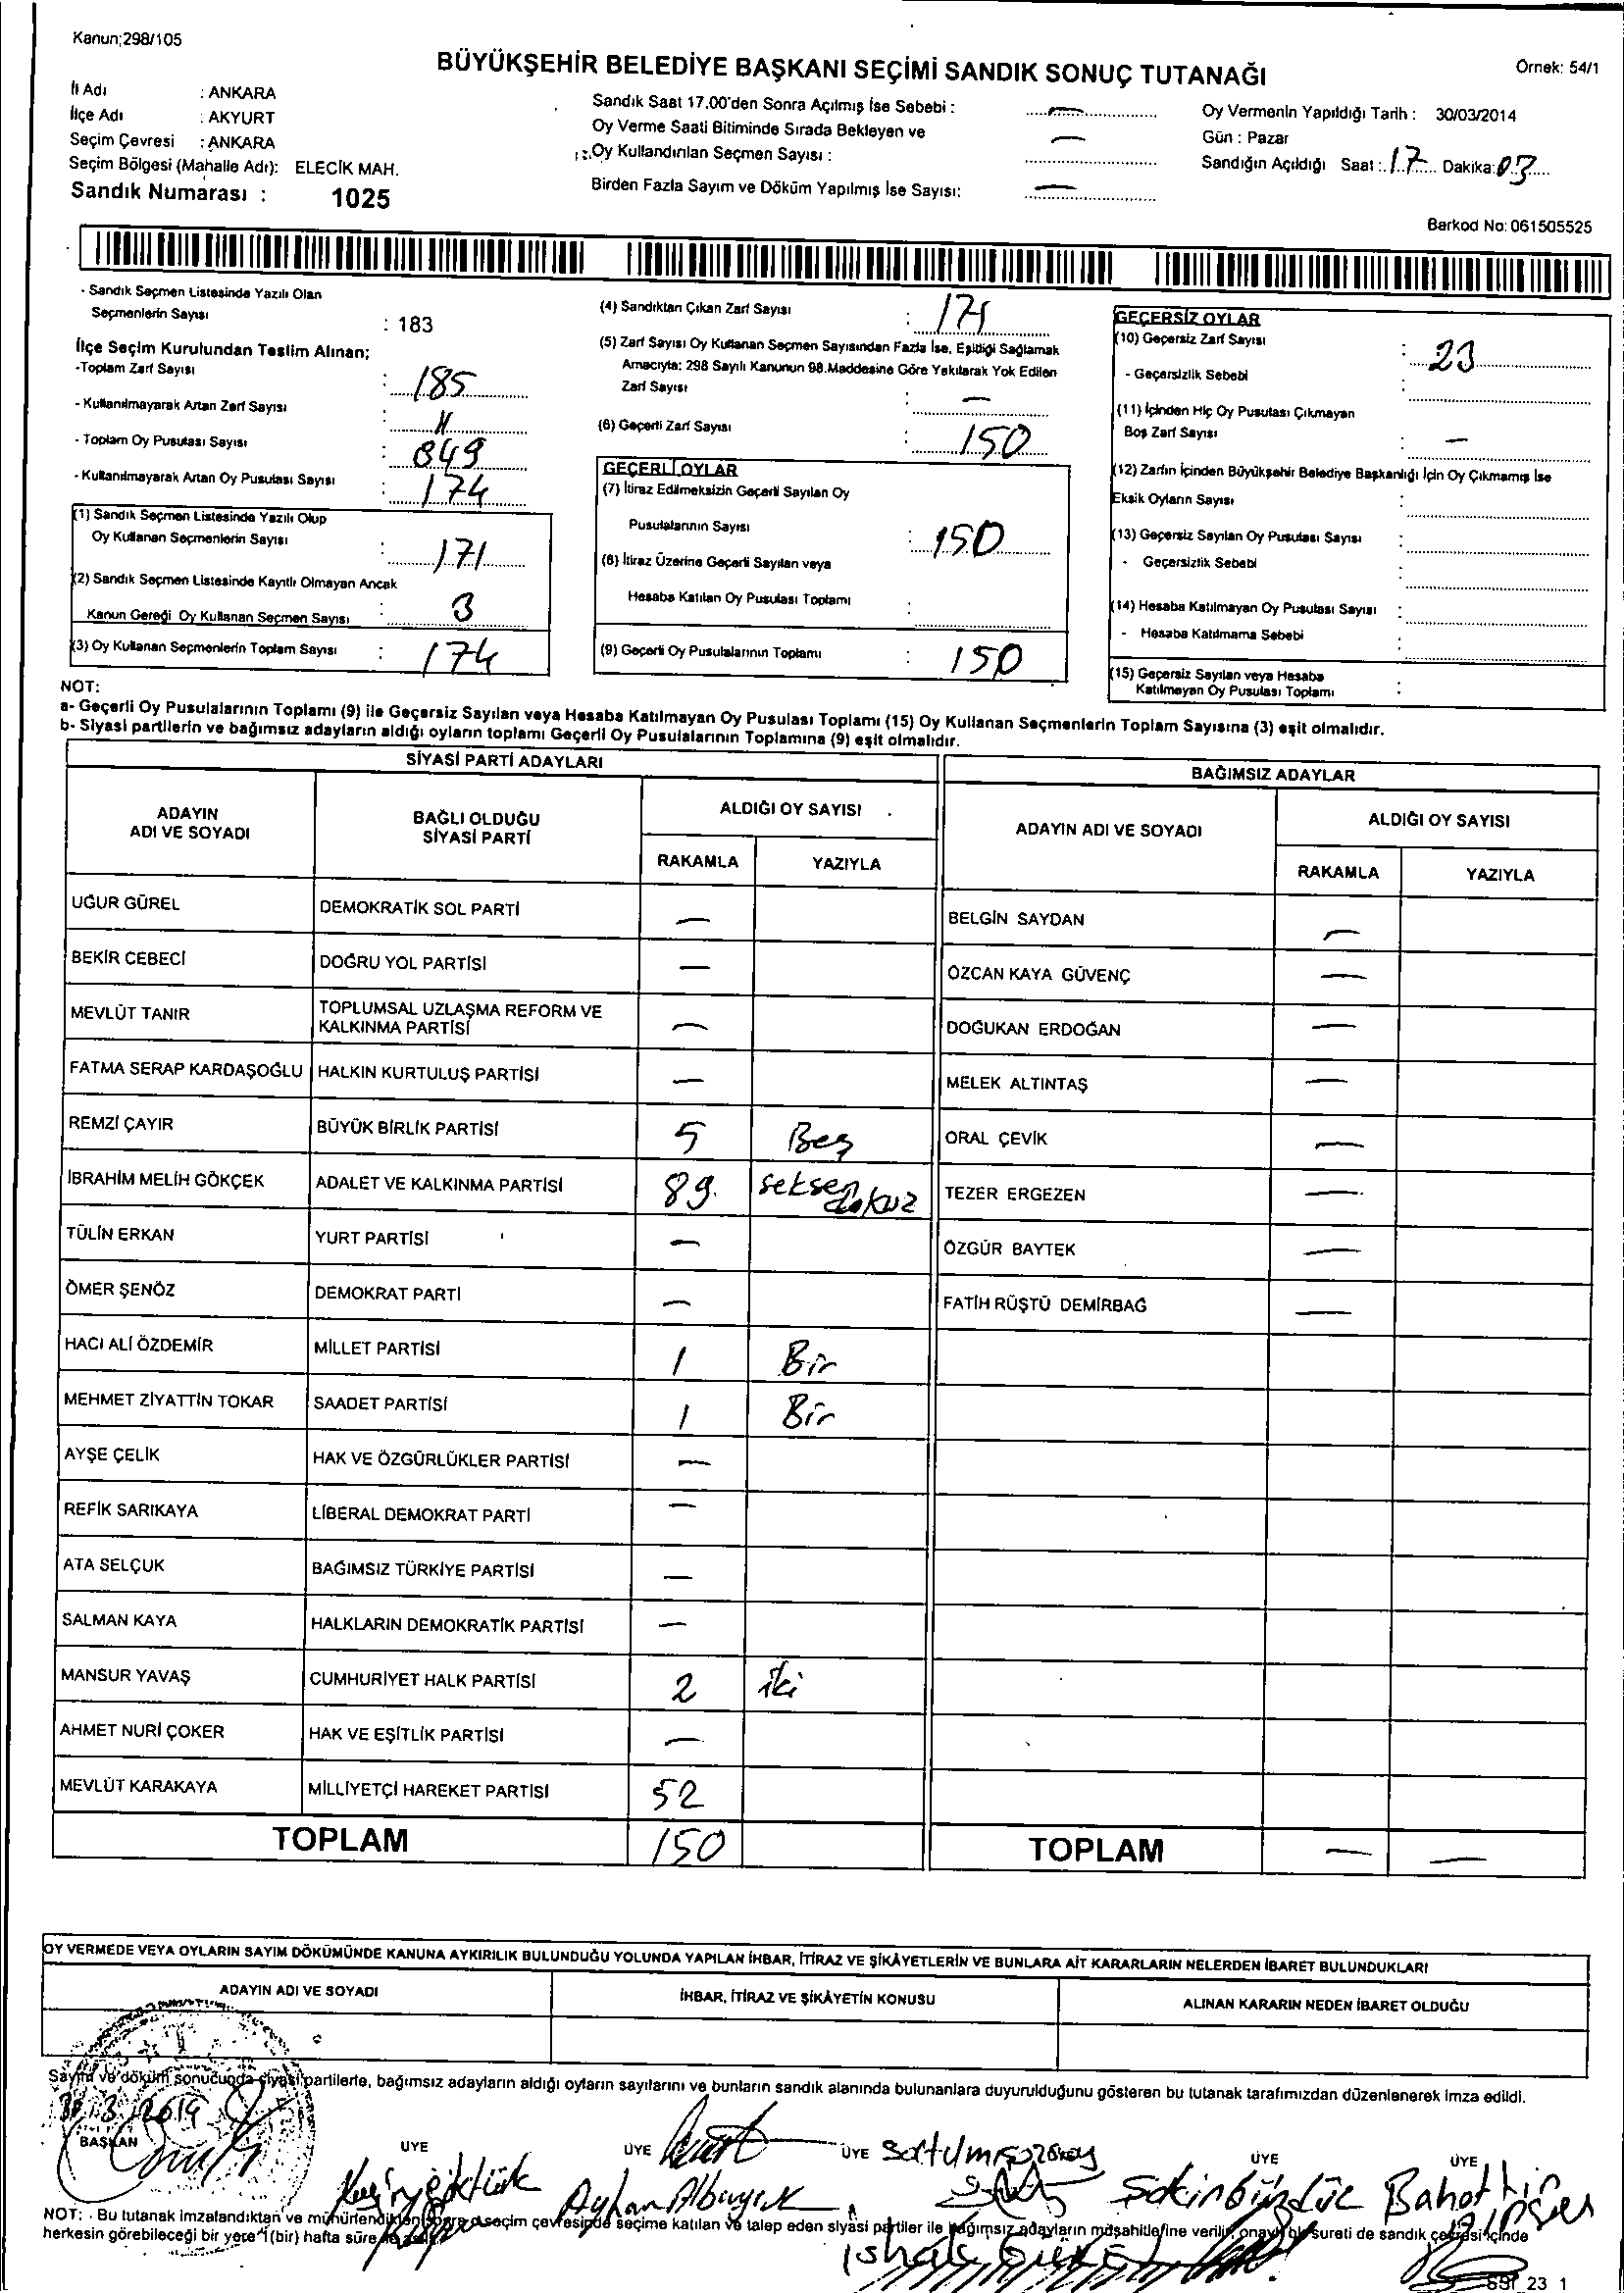 Kanun;298/105
BÜYÜKŞEHİR BELEDİYE BAŞKANI SEÇİMİ SANDIK SONUÇ TUTANAĞI
Örnek: 54/1
İl Adı : ANKARA
İlçe Adı : AKYURT
Seçim Çevresi : ANKARA
Seçim Bölgesi (Mahalle Adı): ELECİK MAH.
Sandık Numarası : 1025
Sandık Saat 17.00'den Sonra Açılmış İse Sebebi : —
Oy Verme Saati Bitiminde Sırada Bekleyen ve
Oy Kullandırılan Seçmen Sayısı : —
Birden Fazla Sayım ve Döküm Yapılmış İse Sayısı: —
Oy Vermenin Yapıldığı Tarih : 30/03/2014
Gün : Pazar
Sandığın Açıldığı Saat : 17 Dakika: 03
Barkod No: 061505525
- Sandık Seçmen Listesinde Yazılı Olan
Seçmenlerin Sayısı : 183
İlçe Seçim Kurulundan Teslim Alınan;
-Toplam Zarf Sayısı : 185
- Kullanılmayarak Artan Zarf Sayısı : 11
- Toplam Oy Pusulası Sayısı : 849
- Kullanılmayarak Artan Oy Pusulası Sayısı : 174
(1) Sandık Seçmen Listesinde Yazılı Olup
Oy Kullanan Seçmenlerin Sayısı : 171
(2) Sandık Seçmen Listesinde Kayıtlı Olmayan Ancak
Kanun Gereği Oy Kullanan Seçmen Sayısı : 3
(3) Oy Kullanan Seçmenlerin Toplam Sayısı : 174
(4) Sandıktan Çıkan Zarf Sayısı :
(5) Zarf Sayısı Oy Kullanan Seçmen Sayısından Fazla İse, Eşitliği Sağlamak
Amacıyla: 298 Sayılı Kanunun 98.Maddesine Göre Yakılarak Yok Edilen
Zarf Sayısı : —
(6) Geçerli Zarf Sayısı : 150
GEÇERLİ OYLAR
(7) İtiraz Edilmeksizin Geçerli Sayılan Oy
Pusulalarının Sayısı : 150
(8) İtiraz Üzerine Geçerli Sayılan veya
Hesaba Katılan Oy Pusulası Toplamı :
(9) Geçerli Oy Pusulalarının Toplamı : 150
GEÇERSİZ OYLAR
(10) Geçersiz Zarf Sayısı : 23
- Geçersizlik Sebebi :
(11) İçinden Hiç Oy Pusulası Çıkmayan
Boş Zarf Sayısı : —
(12) Zarfın İçinden Büyükşehir Belediye Başkanlığı İçin Oy Çıkmamış İse
Eksik Oyların Sayısı :
(13) Geçersiz Sayılan Oy Pusulası Sayısı :
- Geçersizlik Sebebi :
(14) Hesaba Katılmayan Oy Pusulası Sayısı :
- Hesaba Katılmama Sebebi :
(15) Geçersiz Sayılan veya Hesaba
Katılmayan Oy Pusulası Toplamı :
NOT:
a- Geçerli Oy Pusulalarının Toplamı (9) ile Geçersiz Sayılan veya Hesaba Katılmayan Oy Pusulası Toplamı (15) Oy Kullanan Seçmenlerin Toplam Sayısına (3) eşit olmalıdır.
b- Siyasi partilerin ve bağımsız adayların aldığı oyların toplamı Geçerli Oy Pusulalarının Toplamına (9) eşit olmalıdır.
SİYASİ PARTİ ADAYLARI
ADAYIN ADI VE SOYADI BAĞLI OLDUĞU SİYASİ PARTİ ALDIĞI OY SAYISI
RAKAMLA YAZIYLA
UĞUR GÜREL DEMOKRATİK SOL PARTİ —
BEKİR CEBECİ DOĞRU YOL PARTİSİ —
MEVLÜT TANIR TOPLUMSAL UZLAŞMA REFORM VE KALKINMA PARTİSİ —
FATMA SERAP KARDAŞOĞLU HALKIN KURTULUŞ PARTİSİ —
REMZİ ÇAYIR BÜYÜK BİRLİK PARTİSİ 5 Beş
İBRAHİM MELİH GÖKÇEK ADALET VE KALKINMA PARTİSİ 89 seksen dokuz
TÜLİN ERKAN YURT PARTİSİ —
ÖMER ŞENÖZ DEMOKRAT PARTİ —
HACI ALİ ÖZDEMİR MİLLET PARTİSİ 1 Bir
MEHMET ZİYATTİN TOKAR SAADET PARTİSİ 1 Bir
AYŞE ÇELİK HAK VE ÖZGÜRLÜKLER PARTİSİ —
REFİK SARIKAYA LİBERAL DEMOKRAT PARTİ —
ATA SELÇUK BAĞIMSIZ TÜRKİYE PARTİSİ —
SALMAN KAYA HALKLARIN DEMOKRATİK PARTİSİ —
MANSUR YAVAŞ CUMHURİYET HALK PARTİSİ 2 iki
AHMET NURİ ÇOKER HAK VE EŞİTLİK PARTİSİ —
MEVLÜT KARAKAYA MİLLİYETÇİ HAREKET PARTİSİ 52
TOPLAM 150
BAĞIMSIZ ADAYLAR
ADAYIN ADI VE SOYADI ALDIĞI OY SAYISI
RAKAMLA YAZIYLA
BELGİN SAYDAN —
ÖZCAN KAYA GÜVENÇ —
DOĞUKAN ERDOĞAN —
MELEK ALTINTAŞ —
ORAL ÇEVİK —
TEZER ERGEZEN —
ÖZGÜR BAYTEK —
FATİH RÜŞTÜ DEMİRBAĞ —
TOPLAM — —
OY VERMEDE VEYA OYLARIN SAYIM DÖKÜMÜNDE KANUNA AYKIRILIK BULUNDUĞU YOLUNDA YAPILAN İHBAR, İTİRAZ VE ŞİKÂYETLERİN VE BUNLARA AİT KARARLARIN NELERDEN İBARET BULUNDUKLARI
ADAYIN ADI VE SOYADI İHBAR, İTİRAZ VE ŞİKÂYETİN KONUSU ALINAN KARARIN NEDEN İBARET OLDUĞU
Sayım ve döküm sonucunda siyasi partilerle, bağımsız adayların aldığı oyların sayılarını ve bunların sandık alanında bulunanlara duyurulduğunu gösteren bu tutanak tarafımızdan düzenlenerek imza edildi.
BAŞKAN ÜYE ÜYE ÜYE ÜYE ÜYE
Ayhan Albayrak
NOT: - Bu tutanak imzalandıktan ve mühürlendikten sonra o seçim çevresinde seçime katılan ve talep eden siyasi partiler ile bağımsız adayların müşahitlerine verilir, onaylı bir sureti de sandık çevresi içinde
herkesin görebileceği bir yere 1(bir) hafta süre